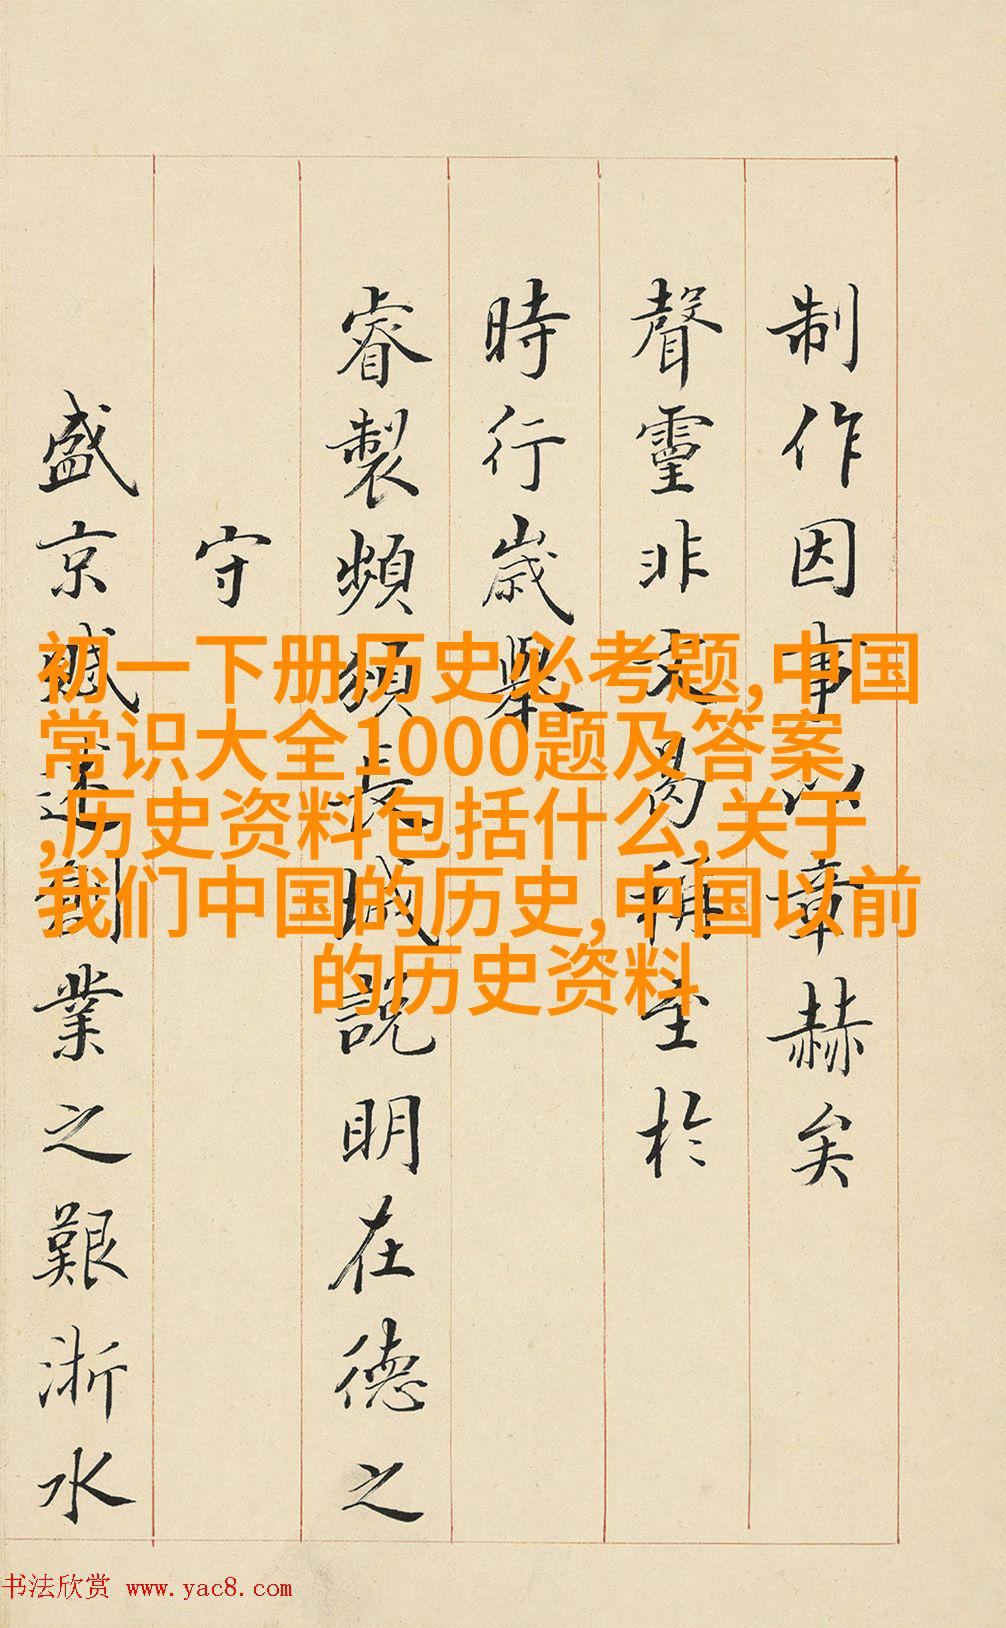 制作因事以章赫矣
聲靈非曷稱至於
時行歲舉
睿製頻頒長城說明在德之
守
盛京賦述創業之艱浙水
初一下册历史必考题,中国
常识大全1000题及答案
,历史资料包括什么,关于
我们中国的历史,中国以前
的历史资料
书法欣赏 www.yac8.com